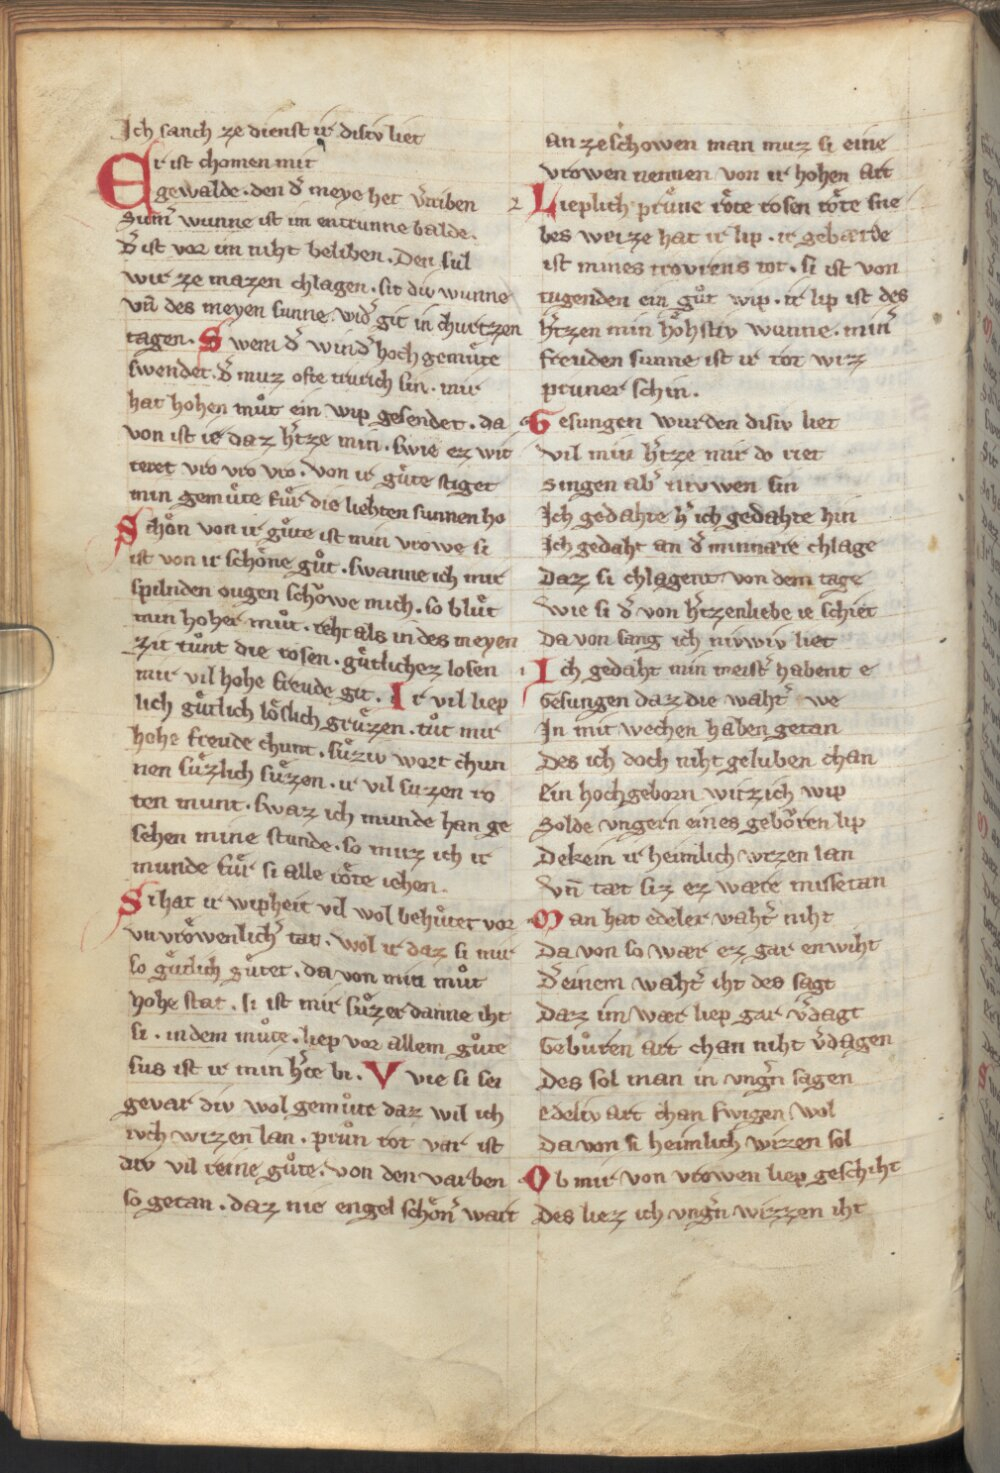 Ich sanch ze dienst ir disiv liet
Er ist chomen mit
gewalde · den d͛ meye het v͛triben
Sum͛ wunne ist im entrunne balde ·
D͛ ist vor im niht beliben · Den sul
wir ze mazen chlagen · sit div wunne
vn̄ des meyen sunne · wid͛ git in churtzen
tagen · Swem d͛ wind͛ hoch gemuͤte
swendet · d͛ muz ofte trurich sin · mir
hat hohen muͦt ein wip gesendet · da
von ist ie daz h͛tze min · swie ez wit
teret vro vro vro · von ir guͤte stiget
min gemuͤte fuͤr die liehten sunnen ho
Schoͤn von ir guͤte ist min vrowe si
ist von ir schoͤne guͦt · swanne ich mit
spilnden ougen schoͤwe mich · so bluͤt
min hoher muͦt · reht als in des meyen
zit tuͦnt die rosen · guͤtlichez losen
mir vil hohe freude git · Ir vil liep
lich guͤtlich loͤslich gruͤzen · tuͦt mir
hohe freude chunt · suͤziv wort chun
nen suͤzlich suͤzen · ir vil suzen ro
ten munt · swaz ich munde han ge
sehen mine stunde · so muz ich ir
munde fuͤr si alle roͤte iehen ·
Si hat ir wipheit vil wol behuͤtet vor
vnvroͤwenlich͛ tat · wol ir daz si mir
so guͤtlich guͤtet · da von min muͦt
hohe stat · si ist mir suͤzer danne iht
si · in dem muͦte · liep vor allem guͦte
sus ist ir min h͛tze bi · Vvie si sei
gevar div wol gemuͤte daz wil ich
ivch wizzen lan · pruͦn rot var ist
div vil reine guͦte · von den varben
so getan · daz nie engel schoͤn͛ wart
an zeschowen man muz si eine
vrowen nennen von ir hohen art
Lieplich pruͤne roͤte rosen roͤte sne
bes weize hat ir lip · ir gebærde
ist mines trovrens tot · si ist von
tugenden ein guͦt wip · ir lip ist des
h͛tzen min hoͤhstiv wunne · min͛
freuden sunne ist ir rot wiz
pruner schin ·
Gesungen wurden disiv liet
vil miu h͛tze mir do riet
Singen ab͛ nivwen sin
Ich gedahte h͛ ich gedahte hin
Ich gedaht an d͛ minnære chlage
Daz si chlagent von dem tage
Wie si d͛ von h͛tzenliebe ie schiet
Da von sang ich nivwiv liet
Ich gedaht min meist͛ habent e
Gesungen daz die waht͛ we
In mit wechen haben getan
Des ich doch niht geluben chan
Ein hochgeborn witzich wip
Solde vngern eines geboͤren lip
Dekein ir heimlich wizen lan
Vn̄ tæt siz ez wære missetan
Man hat edeler waht͛ niht
Da von so wær ez gar enwiht
D͛ einem waht͛ iht des sagt
Daz im wær liep gar v͛dagt
Gebuͤren art chan niht v͛dagen
Des sol man in vng͛n sagen
Edeliv art chan swigen wol
Da von si heimlich wizen sol
Ob mir von vrowen liep geschiht
Des liez ich vng͛n wizzen iht